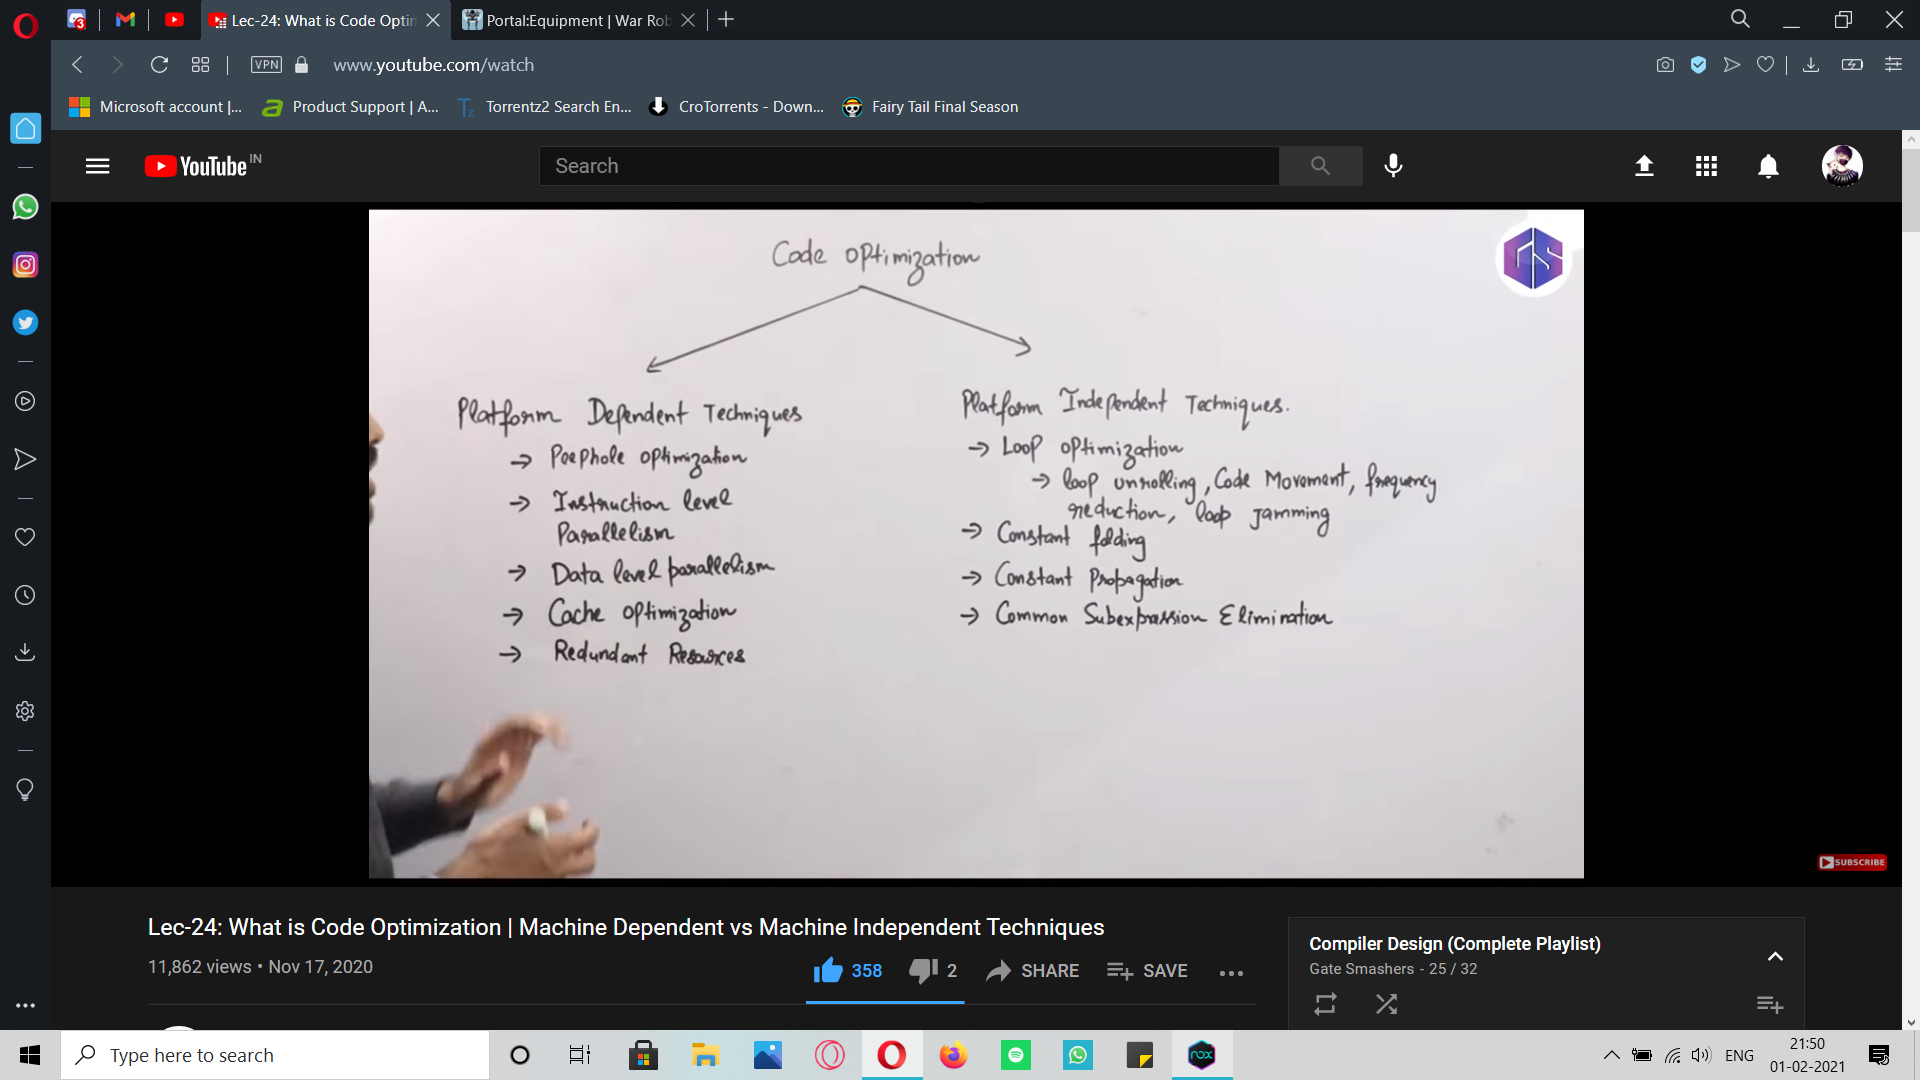 Lec-24: What is Code Optim
Portal:Equipment | War Rob
VPN
www.youtube.com/watch
Microsoft account |...
Product Support | A...
Torrentz2 Search En...
CroTorrents - Down...
Fairy Tail Final Season
YouTube IN
Search
Code Optimization
Platform Dependent Techniques
→ Peephole optimization
→ Instruction level
Parallelism
→ Data level parallelism
→ Cache Optimization
→ Redundant Resources
Platform Independent Techniques.
→ Loop Optimization
→ loop unrolling, Code Movement, frequency
reduction, loop Jamming
→ Constant folding
→ Constant Propagation
→ Common Subexpression Elimination
SUBSCRIBE
Lec-24: What is Code Optimization | Machine Dependent vs Machine Independent Techniques
11,862 views • Nov 17, 2020
358
2
SHARE
SAVE
Compiler Design (Complete Playlist)
Gate Smashers - 25 / 32
Type here to search
nox
ENG
21:50
01-02-2021